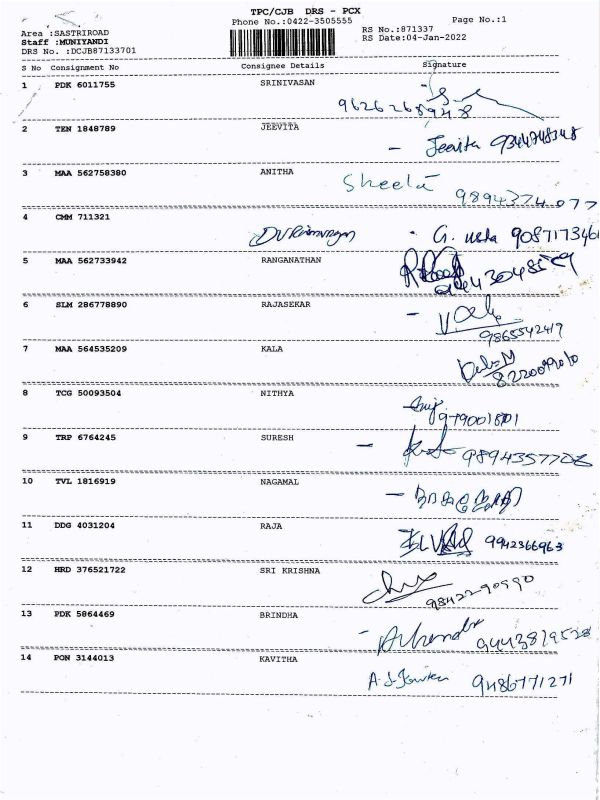 TPC/CJB DRS - PCX
Phone No.:0422-3505555
Page No.:1
Area :SASTRIROAD
Staff :MUNIYANDI
DRS No. :DCJB87133701
RS No.:871337
RS Date:04-Jan-2022
S No Consignment No Consignee Details Signature
1 PDK 6011755 SRINIVASAN
2 TEN 1848789 JEEVITA
- Jeevita 9344748348
3 MAA 562758380 ANITHA
Sheela 9894374077
4 CMM 711321
5 MAA 562733942 RANGANATHAN
6 SLM 286778890 RAJASEKAR
9865542419
7 MAA 564535209 KALA
8 TCG 50093504 NITHYA
9 TRP 6764245 SURESH
10 TVL 1816919 NAGAMAL
11 DDG 4031204 RAJA
9942366963
12 HRD 376521722 SRI KRISHNA
9842290990
13 PDK 5864469 BRINDHA
14 PON 3144013 KAVITHA
9486771271